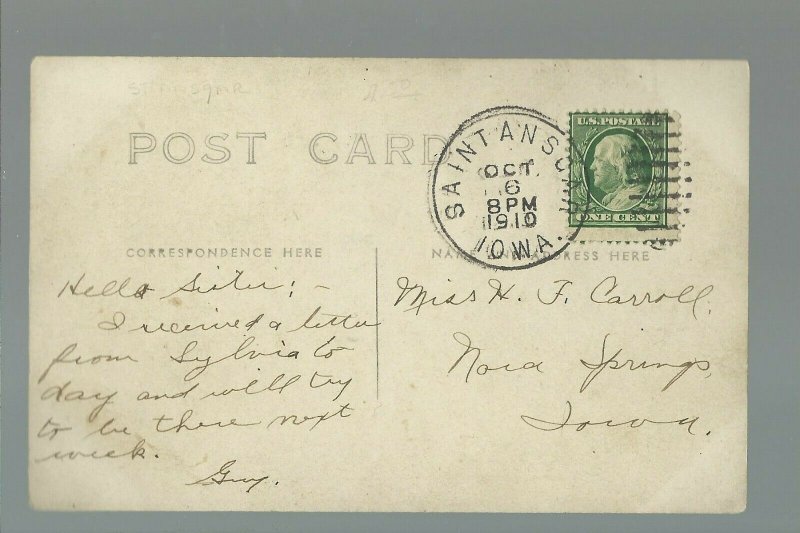 POST CARD
SAINT ANSGAR
OCT
6
8PM
1910
IOWA.
U.S. POSTAGE
ONE CENT
CORRESPONDENCE HERE
NAME AND ADDRESS HERE
Hello Sister: -
I received a letter
from Sylvia to
day and will try
to be there next
week.
Guy.
Miss H. F. Carroll.
Nora Springs,
Iowa.